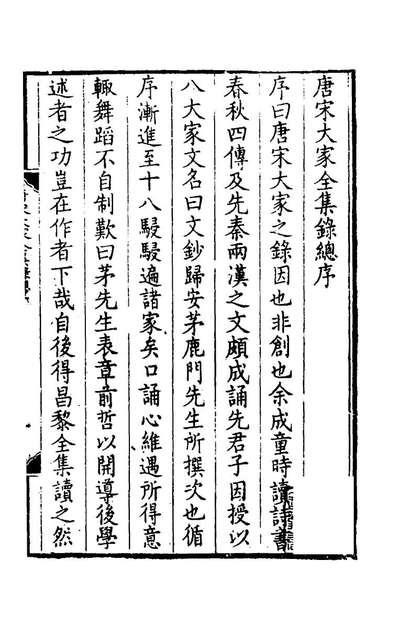 唐宋大家全集錄總序
序曰唐宋大家之錄因也非創也余成童時讀詩書
春秋四傳及先秦兩漢之文頗成誦先君子因授以
八大家文名曰文鈔歸安茅鹿門先生所撰次也循
序漸進至十八駸駸遍諸家矣口誦心維遇所得意
輒舞蹈不自制歎曰茅先生表章前哲以開導後學
述者之功豈在作者下哉自後得昌黎全集讀之然